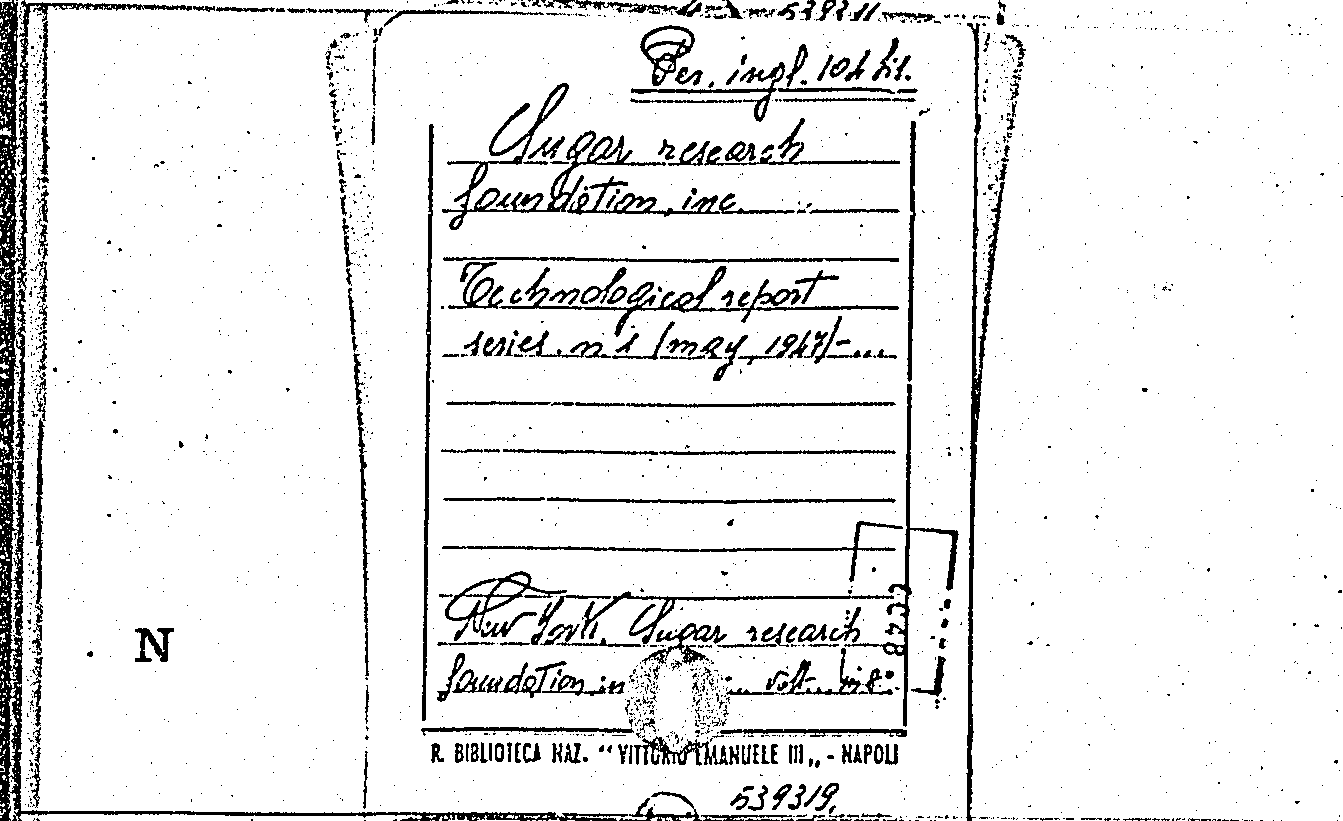 539311
Per. ingl. 104 bis.
Sugar research
foundation, inc.
Technological report
series. n 1 (may, 1947)-...
New York. Sugar research
foundation in ... voll. ... in 8°
CC48
N
R. BIBLIOTECA NAZ. “ VITTORIO EMANUELE III „ - NAPOLI
539319.